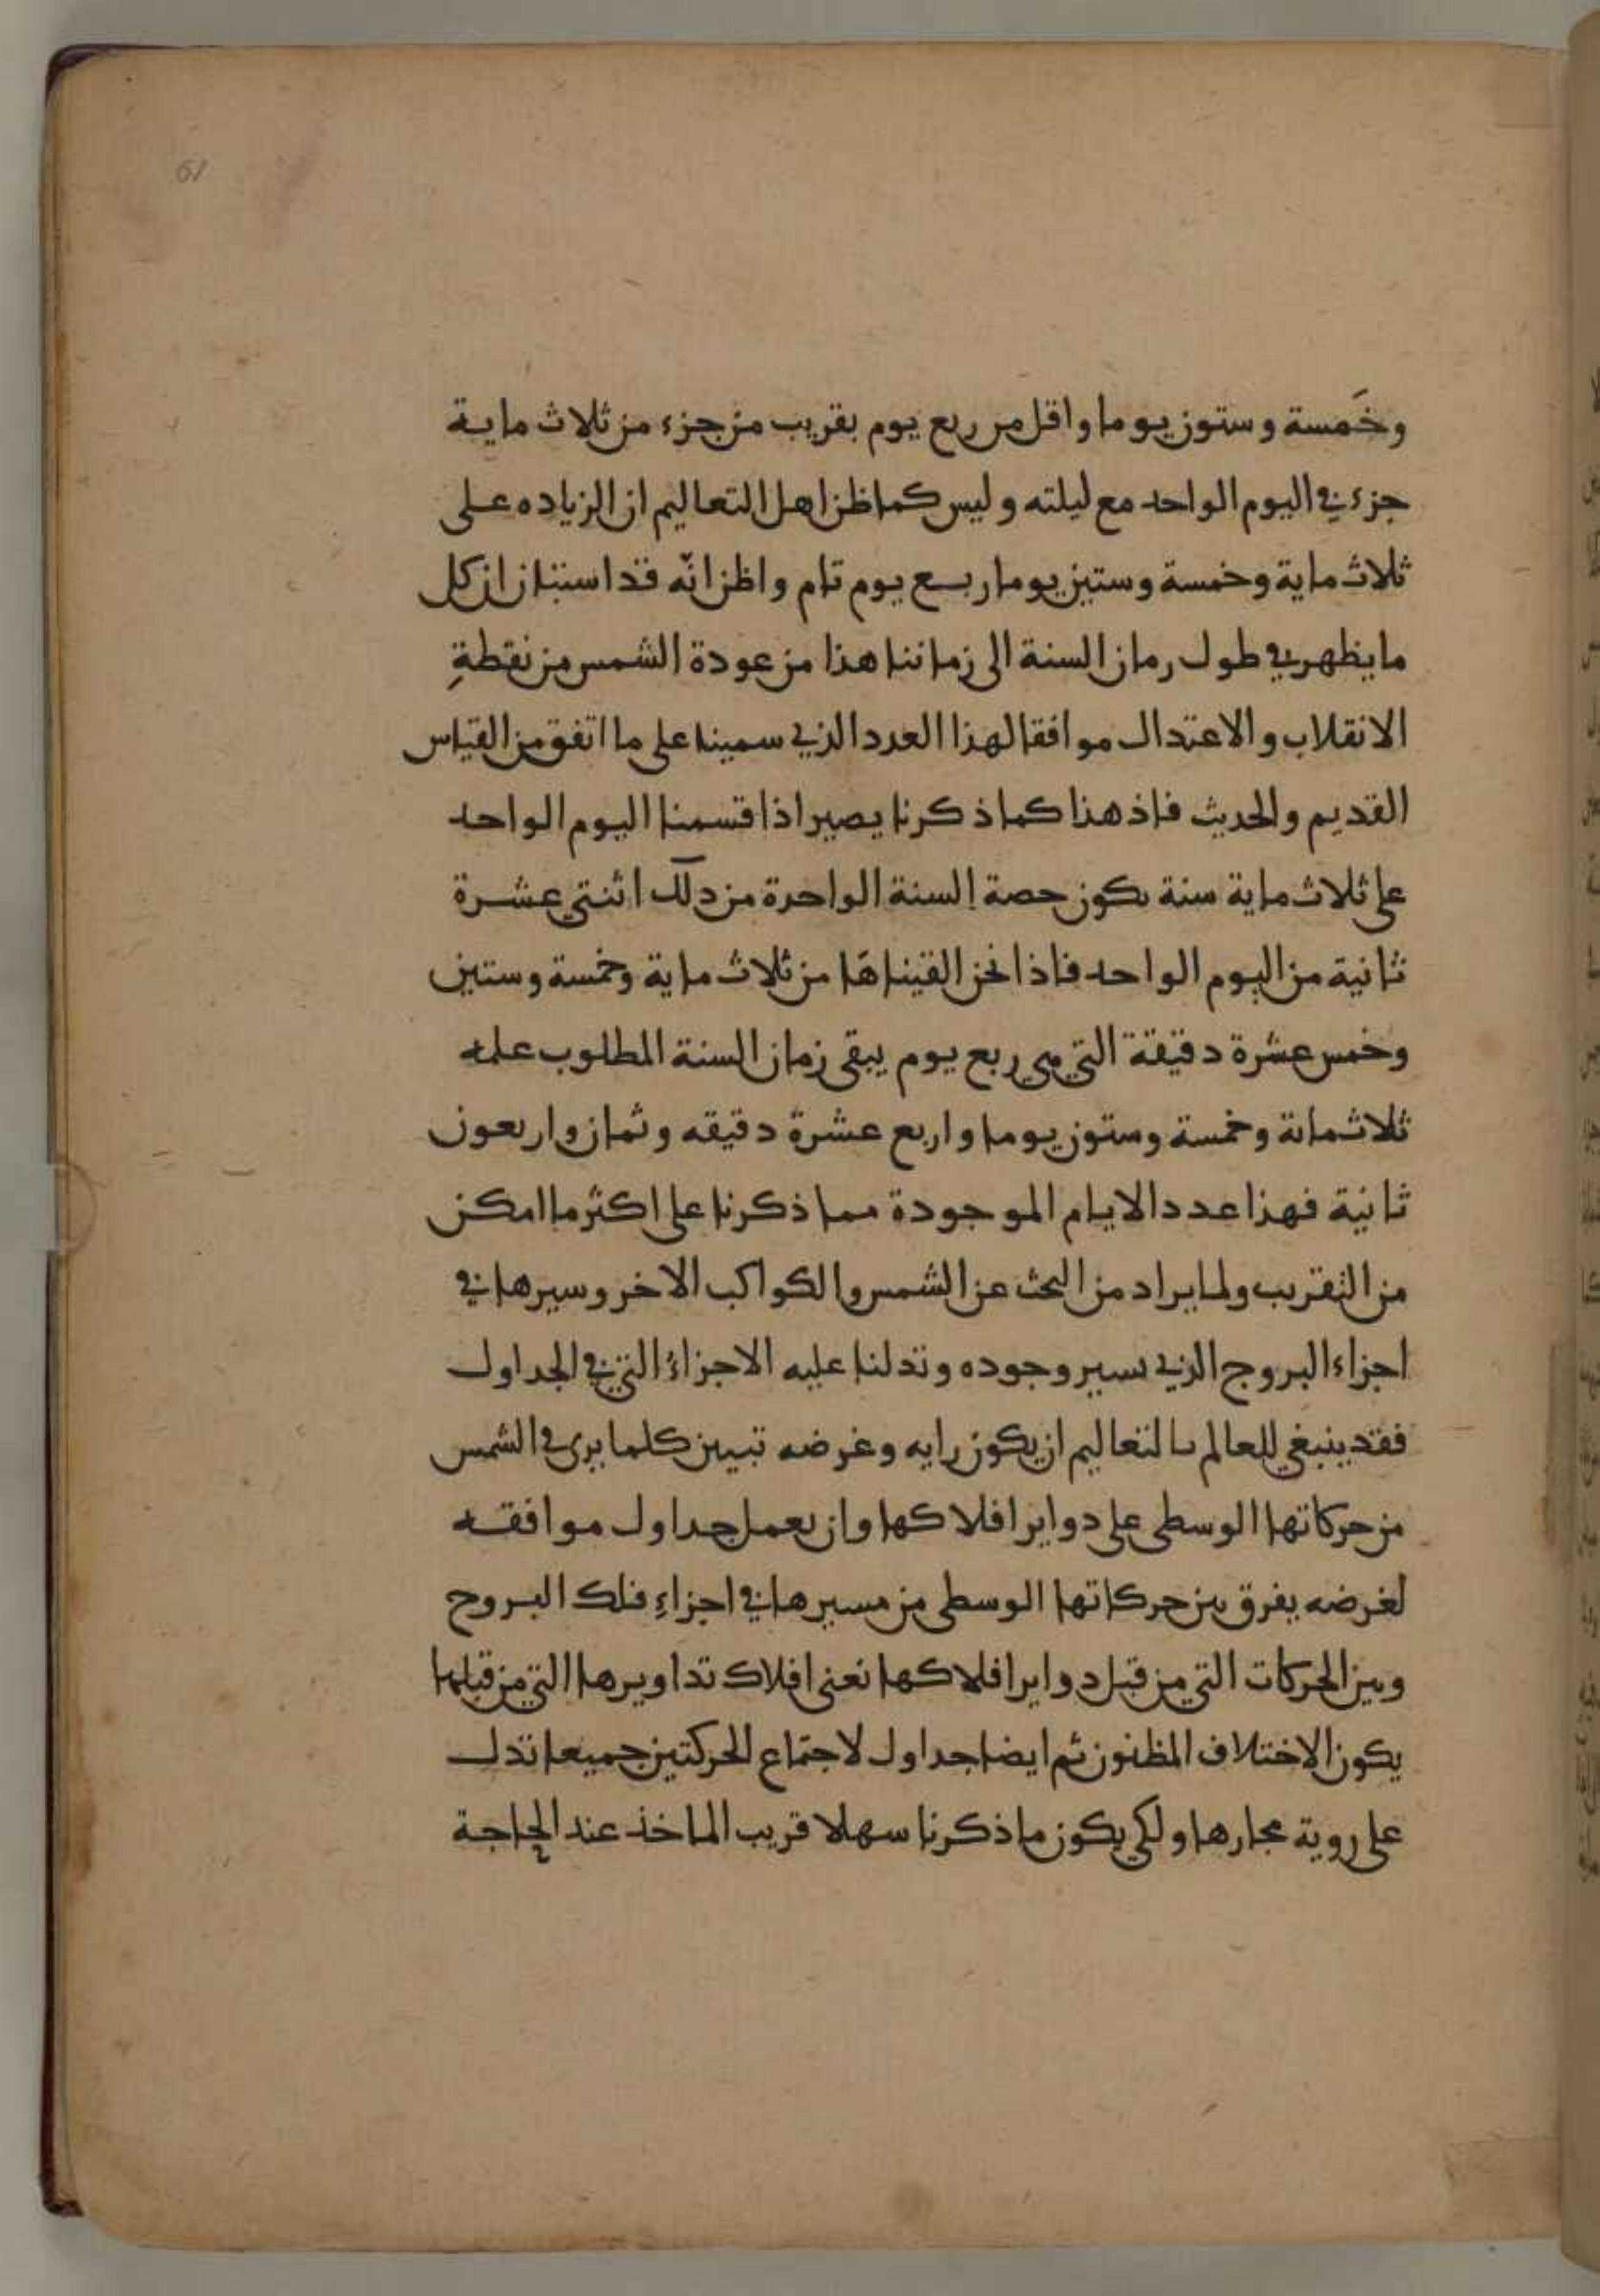 61
وخَمسة وستون يوما واقل من ربع يوم بقريب من جزء من ثلاث ماية
جزء في اليوم الواحد مع ليلته وليس كما ظن اهل التعاليم ان الزياده على
ثلاث ماية وخمسة وستين يوما ربع يوم تام واظن انّه قد استبان ان كل
ما يظهر في طول زمان السنة الى زماننا هذا من عودة الشمس من نقطةِ
الانقلاب والاعتدال موافقا لهذا العدد الذي سمينا على ما اتفق من القياس
القديم والحديث فاذ هذا كما ذكرنا يصير اذا قسمنا اليوم الواحد
على ثلاث ماية سنة يكون حصة السنة الواحدة من ذلك اثنتي عشرة
ثانية من اليوم الواحد فاذا نحن القيناها من ثلاث ماية وخمسة وستين
وخمس عشرة دقيقة التي هي ربع يوم يبقى زمان السنة المطلوب علمه
ثلاثماية وخمسة وستون يوما واربع عشرة دقيقه وثمان واربعون
ثانية فهذا عدد الايام الموجودة مما ذكرنا على اكثر ما امكن
من التقريب ولما يراد من البحث عن الشمس والكواكب الاخر وسيرها في
اجزاء البروج الذي نسير وجوده وتدلنا عليه الاجزاءُ التي في الجداول
فقد ينبغي للعالم بالتعاليم ان يكون رايه وغرضه تبيين كلما يرى في الشمس
من حركاتها الوسطى على دواير افلاكها وان يعمل جداول موافقه
لغرضه يفرق بين حركاتها الوسطى من مسيرها في اجزاءِ فلك البروج
وبين الحركات التي من قبل دواير افلاكها نعني افلاك تداويرها التي من قبلها
يكون الاختلاف المظنون ثم ايضا جداول لاجتماع الحركتين جميعا تدل
على روية مجارها ولكي يكون ما ذكرنا سهلا قريب الماخذ عند الحاجة